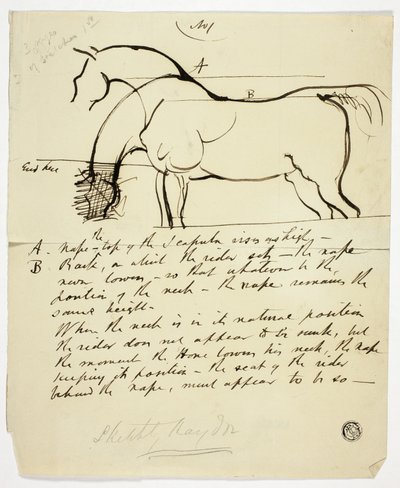 No 1
A
B
A - nape - the top of the Scapula rises as high -
B Back, on which the rider sits - the nape
never lowers - so that whatever be the
position of the neck - the nape remains the
same height -
When the neck is in its natural position
the rider does not appear to be sunk, but
the moment the Horse lowers his neck, the nape
keeping its position - the seat of the rider
behind the nape, must appear to be so -
Sketch by Haydon